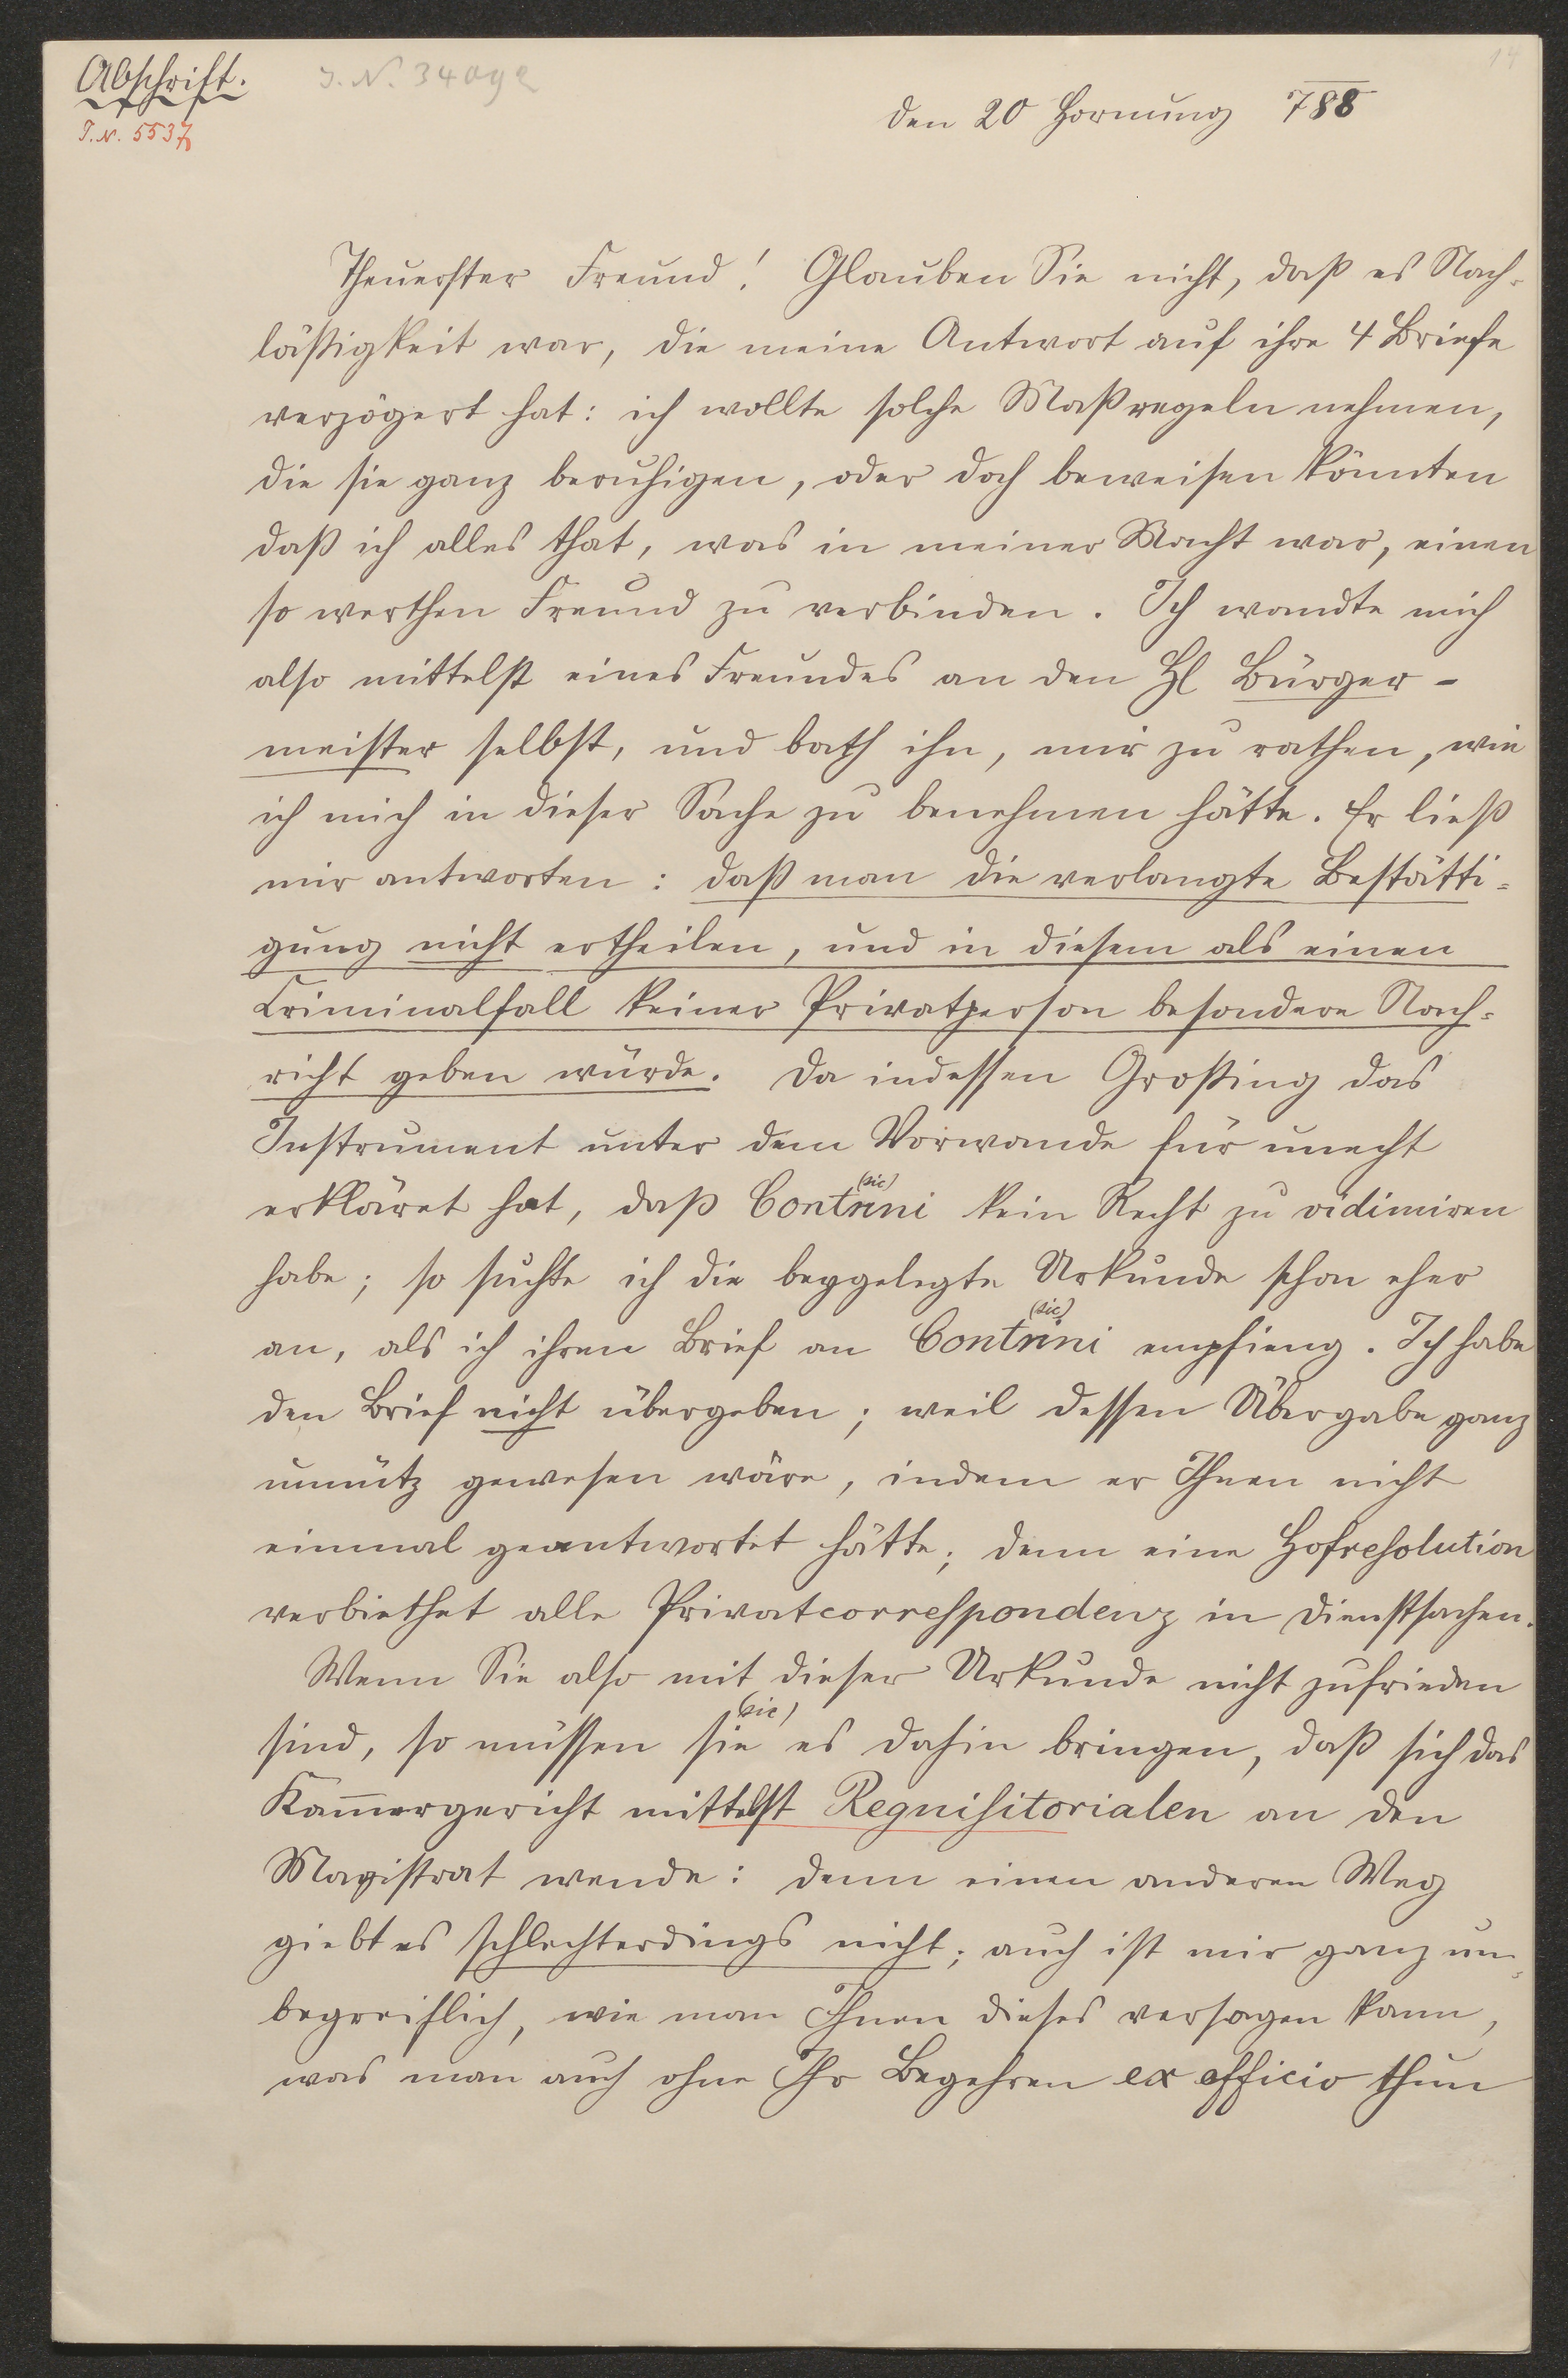 Abschrift.
J.N. 34092
14
J.N. 5537
den 20 Hornung 788
Theuerster Freund! Glauben Sie nicht, daß es Nach-
läßigkeit war, die meine Antwort auf ihre 4 Briefe
verzögert hat: ich wollte solche Maßregeln nehmen,
die sie ganz beruhigen, oder doch beweisen könnten
daß ich alles that, was in meiner Macht war, einen
so werthen Freund zu verbinden. Ich wandte mich
also mittelst eines Freundes an den Hl Bürger-
meister selbst, und bath ihn, mir zu rathen, wie
ich mich in dieser Sache zu benehmen hätte. Er ließ
mir antworten: daß man die verlangte Bestätti-
gung nicht ertheilen, und in diesem als einen
Criminalfall keiner Privatperson besondere Nach-
richt geben würde. Da indessen Großing das
Instrument unter dem Vorwande für unecht
(sic)
erkläret hat, daß Contrini kein Recht zu vidimiren
habe; so suchte ich die beygelegte Urkunde schon eher
(sic)
an, als ich ihren Brief an Contrini empfieng. Ich habe
den Brief nicht übergeben; weil dessen Übergabe ganz
unnütz gewesen wäre, indem er Ihnen nicht
einmal geantwortet hätte; denn eine Hofresolution
verbiethet alle Privatcorrespondenz in Dienstsachen.
Wenn Sie also mit dieser Urkunde nicht zufrieden
(sic)
sind, so müssen sie es dahin bringen, daß sich das
Kam̄ergericht mittelst Requisitorialen an den
Magistrat wende: denn einen anderen Weg
giebt es schlechterdings nicht; auch ist mir ganz un-
begreiflich, wie man Ihnen dieses versagen kann,
was man auch ohne Ihr Begehren ex officio thun